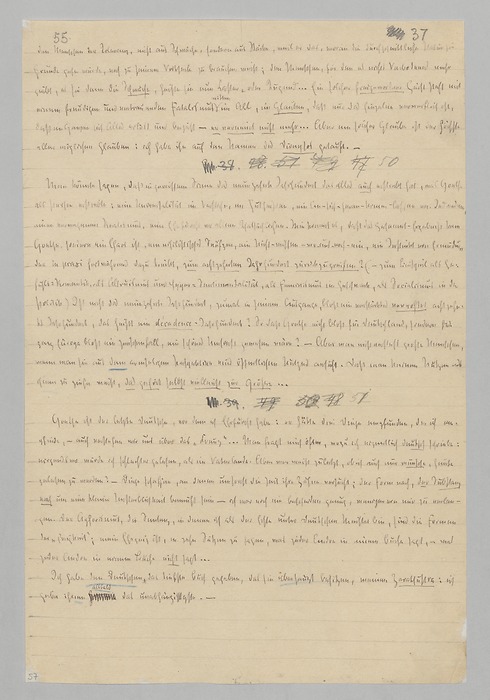 55 37
den Menschen der Toleranz, nicht aus Schwäche, sondern aus Stärke, weil er das, woran die durchschnittliche Natur zu
Grunde gehn würde, noch zu seinem Vortheile zu brauchen weiß; den Menschen, für den es nichts Verbotenes mehr
giebt, es sei denn die Schwäche, heiße sie nun Laster, oder Tugend... Ein solcher freigewordner Geist steht mit
einem freudigen und vertrauenden Fatalismus mitten im All, im Glauben, daß nur das Einzelne verwerflich ist,
daß im Ganzen sich Alles erlöst und bejaht — er verneint nicht mehr... Aber ein solcher Glaube ist der höchste
aller möglichen Glauben: ich habe ihn auf den Namen des Dionysos getauft. —
50
Man könnte sagen, daß in gewissem Sinne das neunzehnte Jahrhundert das Alles auch erstrebt hat, was Goethe
als Person erstrebte: eine Universalität im Verstehn, im Gutheißen, ein An-sich-heran-kommen-lassen von Jedwedem,
einen verwegnen Realismus, eine Ehrfurcht vor allem Thatsächlichen. Wie kommt es, daß das Gesammt-Ergebniß kein
Goethe, sondern ein Chaos ist, ein nihilistisches Seufzen, ein Nicht-wissen-wo-aus-noch-ein, ein Instinkt von Ermüdung,
der in praxi fortwährend dazu treibt, zum achtzehnten Jahrhundert zurückzugreifen? (— zum Beispiel als Ge-
fühls-Romantik, als Altruismus und Hyper-Sentimentalität, als Femininismus im Geschmack, als Socialismus in der
Politik) Ist nicht das neunzehnte Jahrhundert, zumal in seinem Ausgange, bloß ein verstärktes verrohtes achtzehn-
tes Jahrhundert, das heißt ein décadence-Jahrhundert? So daß Goethe nicht bloß für Deutschland, sondern für
ganz Europa bloß ein Zwischenfall, ein schönes Umsonst gewesen wäre? — Aber man mißversteht große Menschen,
wenn man sie aus der armseligen Perspektive eines öffentlichen Nutzens ansieht. Daß man keinen Nutzen aus
ihnen zu ziehn weiß, das gehört selbst vielleicht zur Größe...
51
Goethe ist der letzte Deutsche, vor dem ich Ehrfurcht habe: er hätte drei Dinge empfunden, die ich em-
pfinde, — auch verstehen wir uns über das „Kreuz“... Man fragt mich öfter, wozu ich eigentlich deutsch schriebe:
nirgendswo würde ich schlechter gelesen, als im Vaterlande. Aber wer weiß zuletzt, ob ich auch nur wünsche, heute
gelesen zu werden? — Dinge schaffen, an denen umsonst die Zeit ihre Zähne versucht; der Form nach, der Substanz
nach um eine kleine Unsterblichkeit bemüht sein — ich war noch nie bescheiden genug, weniger von mir zu verlan-
gen. Der Aphorismus, die Sentenz, in denen ich als der Erste unter Deutschen Meister bin, sind die Formen
der „Ewigkeit“; mein Ehrgeiz ist, in zehn Sätzen zu sagen, was jeder Andre in einem Buche sagt, — was
jeder Andre in einem Buche nicht sagt...
Ich habe den Deutschen das tiefste Buch gegeben, das sie überhaupt besitzen, meinen Zarathustra: ich
gebe ihnen das unabhängigste. —
57